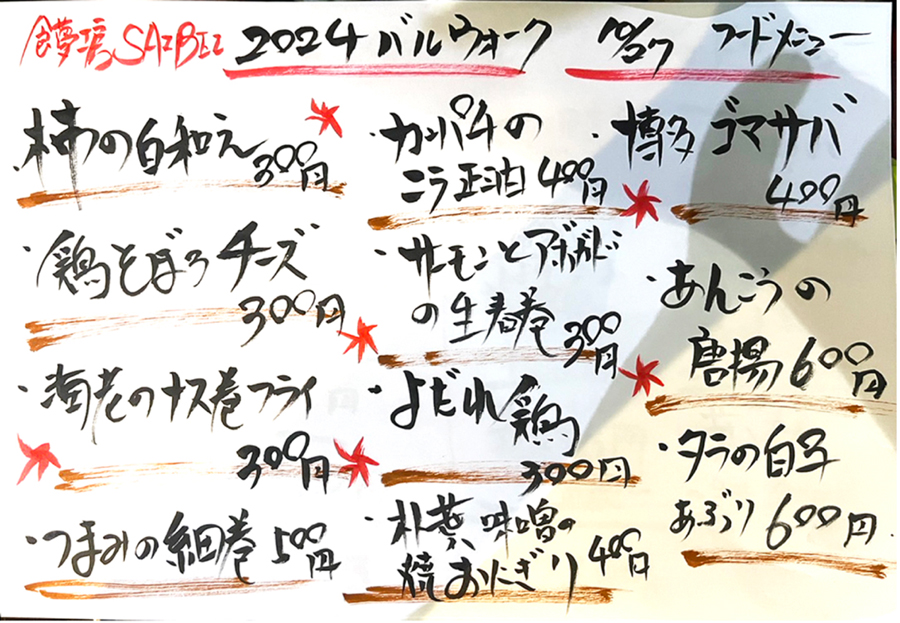 食夢工房SAIBEI 2024バルウォーク 10/27 フードメニュー
柿の白和え
300円
・鶏そぼろチーズ
300円
・海老のナス巻フライ
300円
・つまみの細巻 500円
・カンパチの
こうじ醤油 400円
・サーモンとアボカド
の生春巻 300円
・よだれ鶏
300円
・朴葉味噌の
焼おにぎり 400円
・博多ゴマサバ
400円
・あんこうの
唐揚 600円
・タラの白子
あぶり 600円